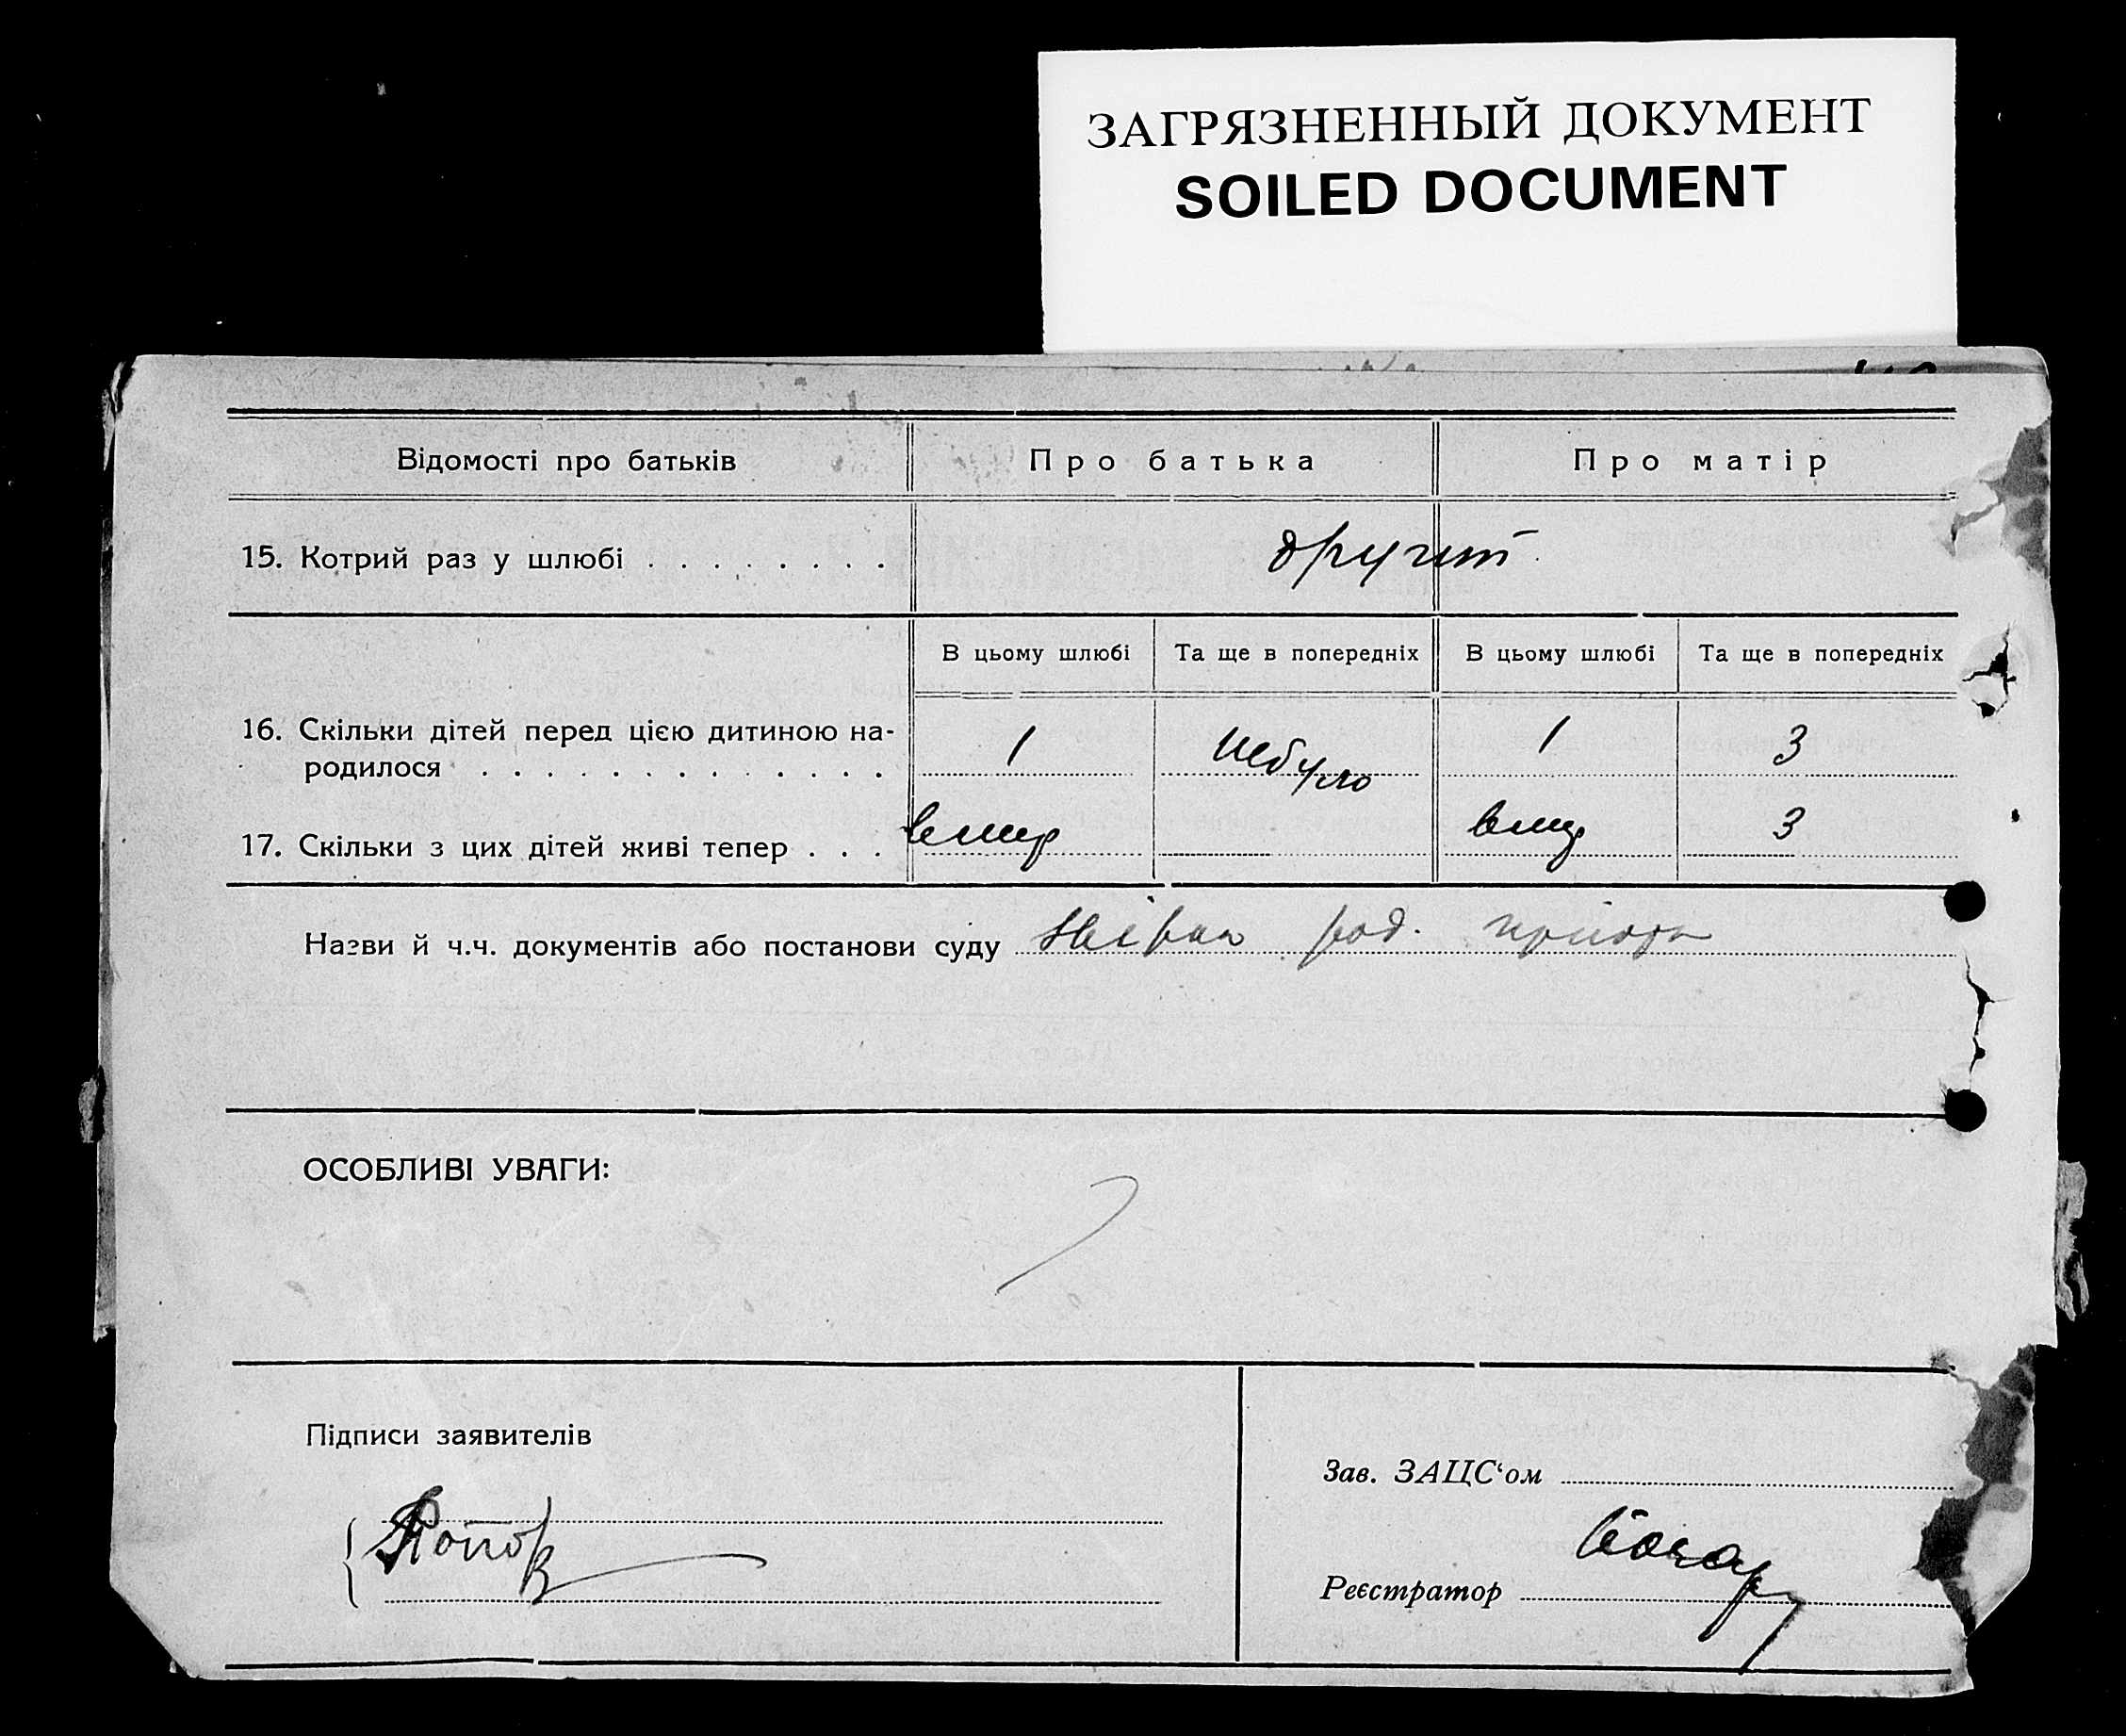 ЗАГРЯЗНЕННЫЙ ДОКУМЕНТ
SOILED DOCUMENT
Відомості про батьків
Про батька
Про матір
15. Котрий раз у шлюбі . . . . . . . . .
другий
В цьому шлюбі
Та ще в попередніх
В цьому шлюбі
Та ще в попередніх
16. Скільки дітей перед цією дитиною на-
родилося . . . . . . . . . . . . .
1
небуло
1
3
17. Скільки з цих дітей живі тепер . . .
вмер
вмер
3
Назви й ч.ч. документів або постанови суду
ОСОБЛИВІ УВАГИ:
Підписи заявителів
Зав. ЗАЦС‘ом
Реєстратор